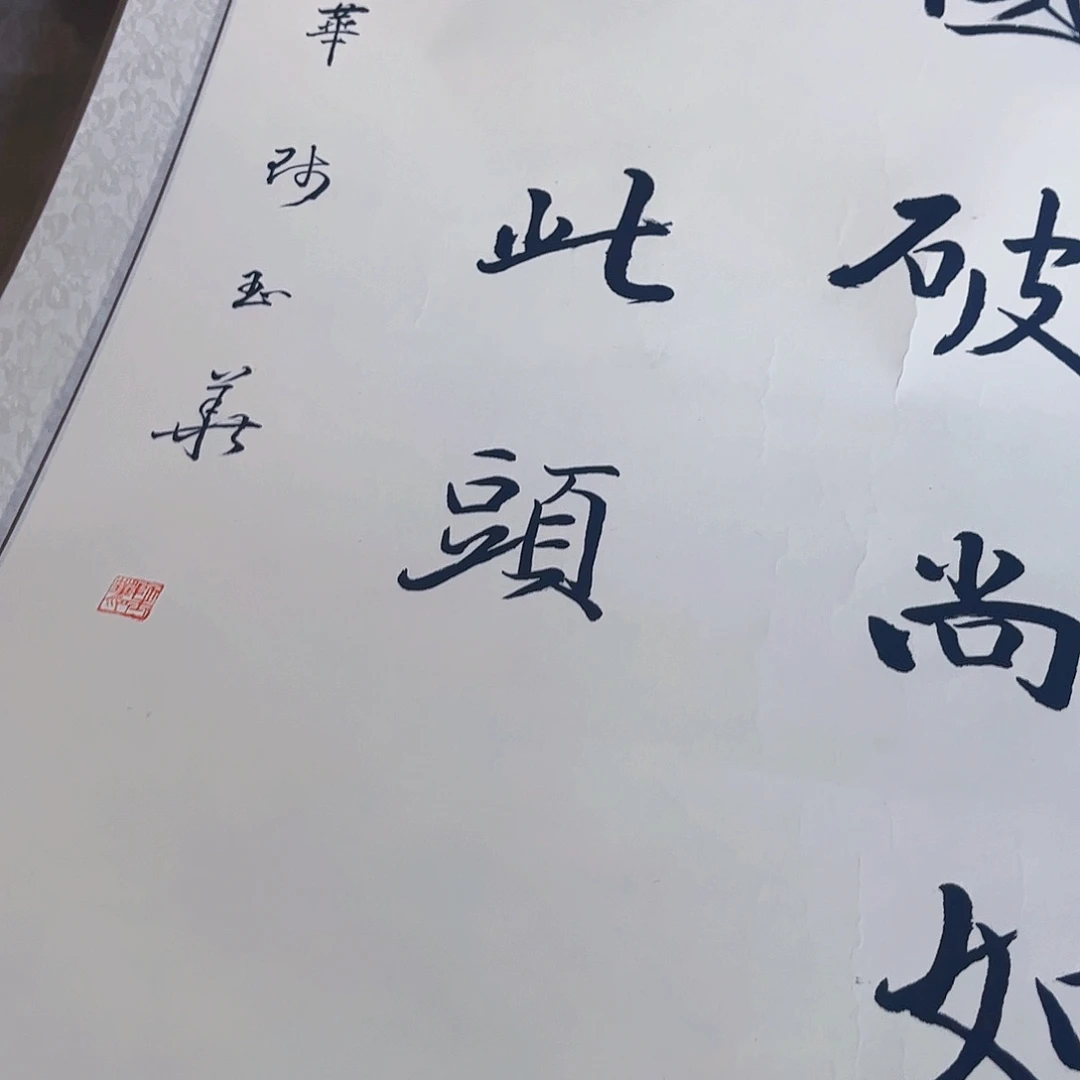 國破尚如
此頭
華 師玉華